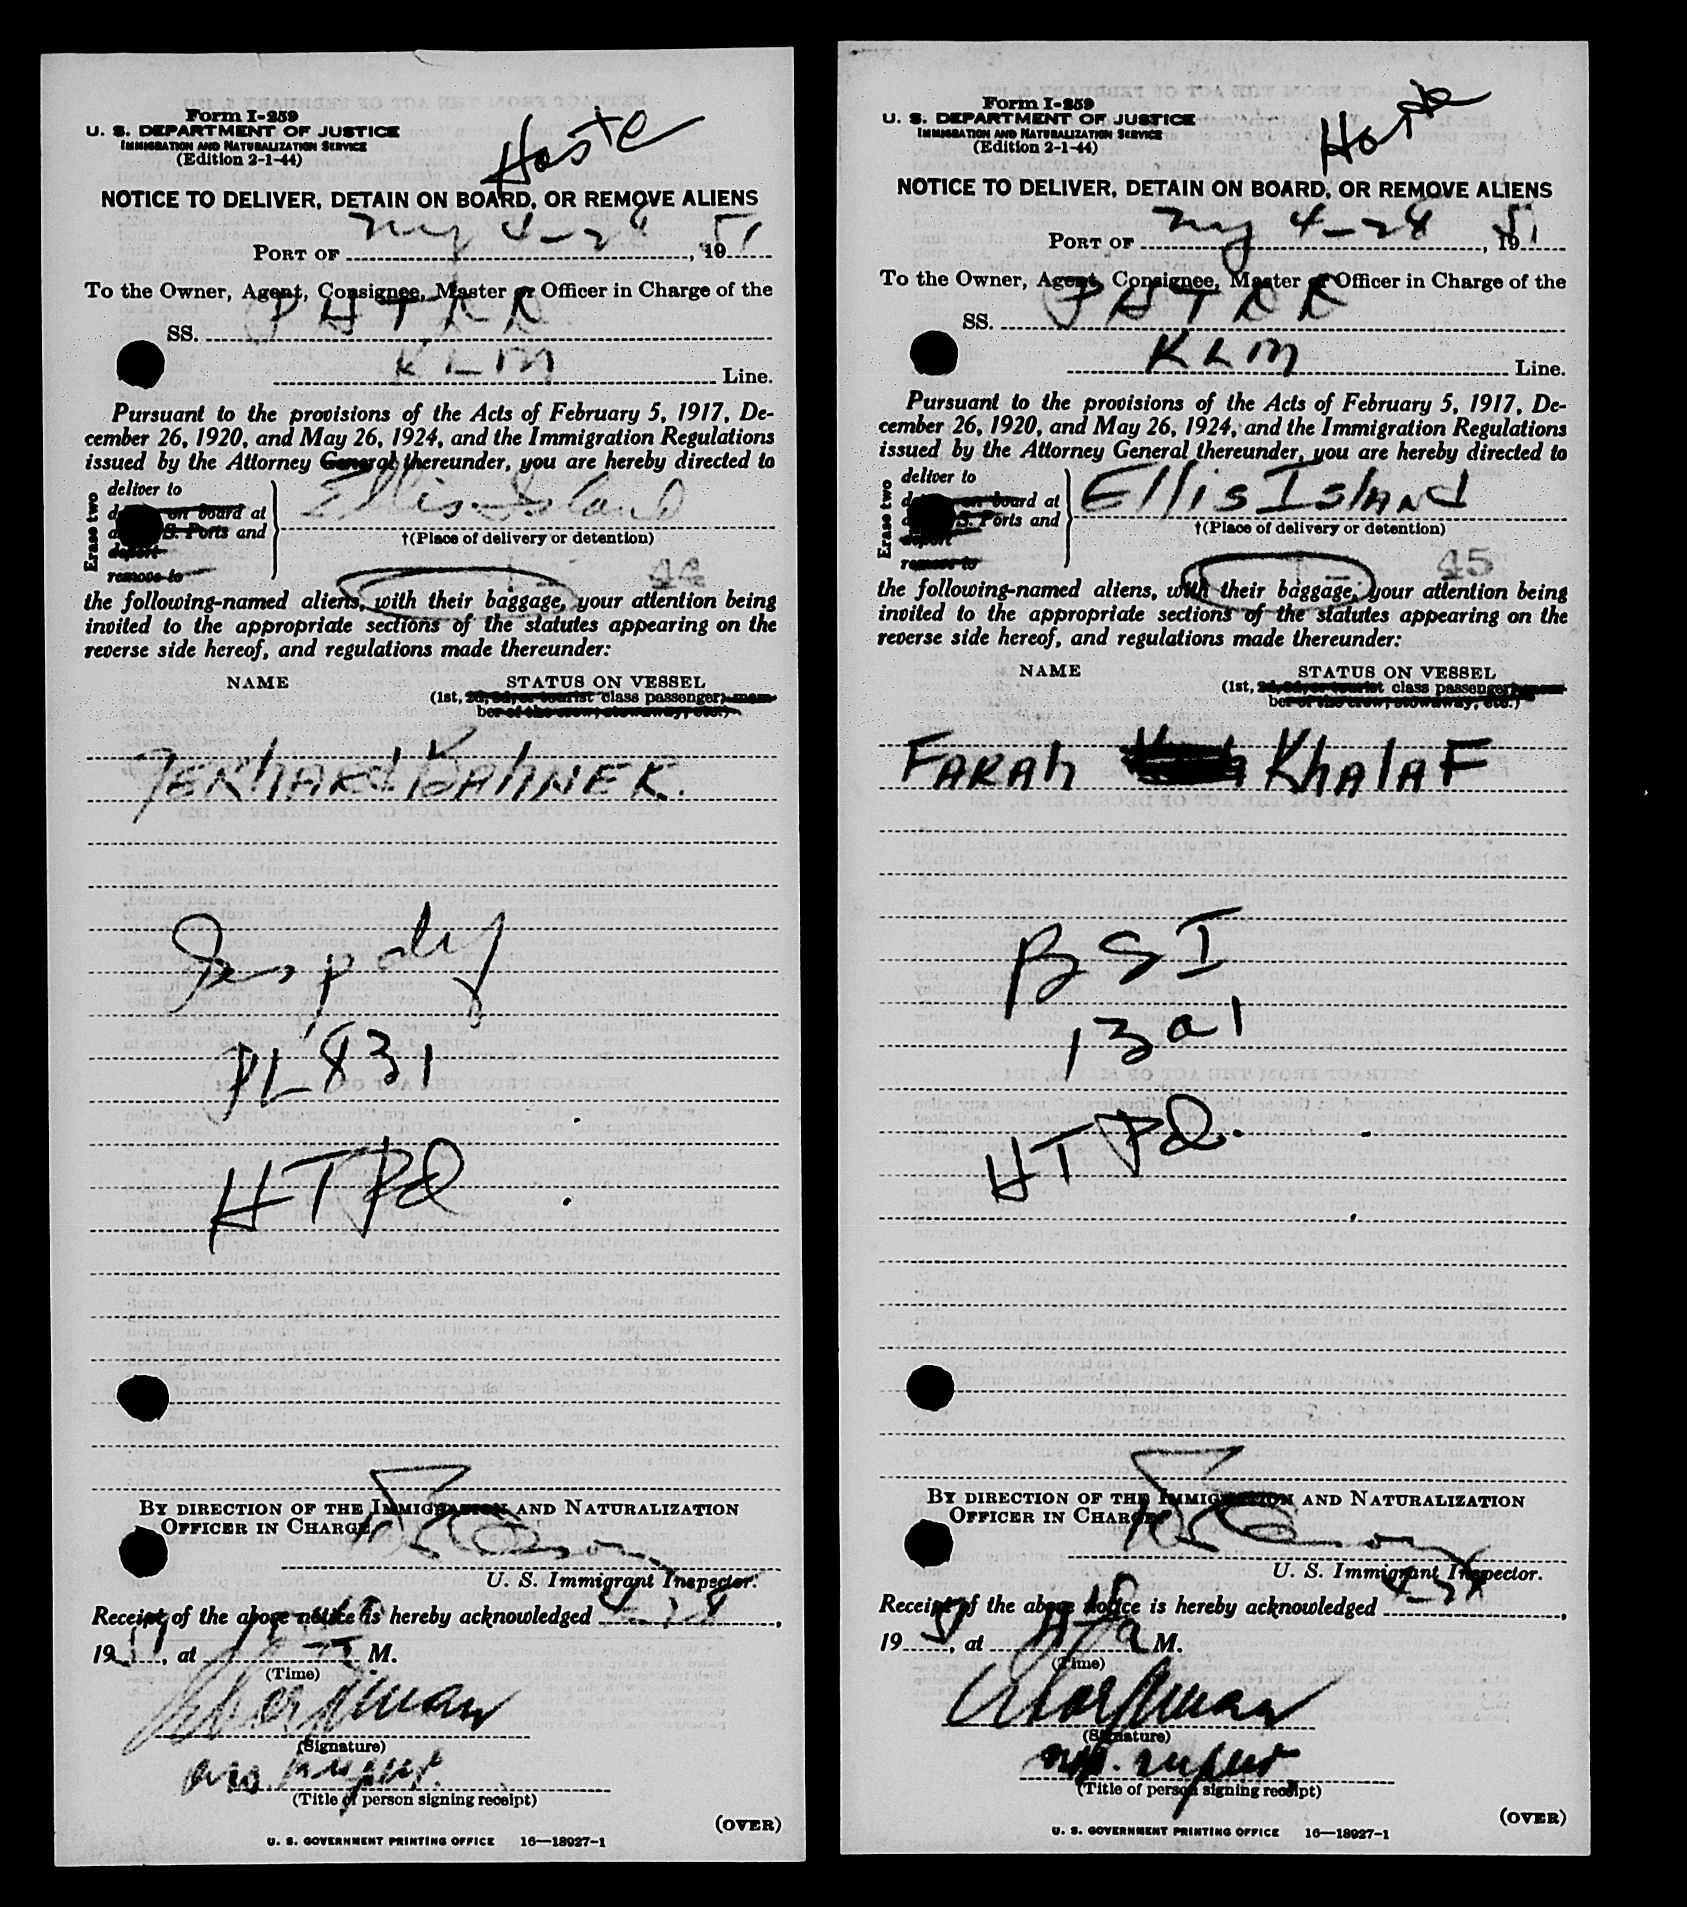 Form I-259
U. S. DEPARTMENT OF JUSTICE
IMMIGRATION AND NATURALIZATION SERVICE
(Edition 2-1-44)
Haste
NOTICE TO DELIVER, DETAIN ON BOARD, OR REMOVE ALIENS
PORT OF ny 4-28, 1951
To the Owner, Agent, Consignee, Master or Officer in Charge of the
SS. PHTAR
KLM Line.
Pursuant to the provisions of the Acts of February 5, 1917, De-
cember 26, 1920, and May 26, 1924, and the Immigration Regulations
issued by the Attorney General thereunder, you are hereby directed to
Erase two
deliver to
on board at
S. Ports and
deport
remove to
Ellis Island
†(Place of delivery or detention)
44
the following-named aliens, with their baggage, your attention being
invited to the appropriate sections of the statutes appearing on the
reverse side hereof, and regulations made thereunder:
NAME STATUS ON VESSEL
(1st, 2d, 3d, or tourist class passenger, mem-
ber of the crew, stowaway, etc.)
JERHARD KAHNER.
PL 831
HTPd
BY DIRECTION OF THE IMMIGRATION AND NATURALIZATION
OFFICER IN CHARGE
U. S. Immigrant Inspector.
Receipt of the above notice is hereby acknowledged 4-28,
1951, at M.
(Time)
(Signature)
(Title of person signing receipt)
(OVER)
U. S. GOVERNMENT PRINTING OFFICE 16—18927-1
Form I-259
U. S. DEPARTMENT OF JUSTICE
IMMIGRATION AND NATURALIZATION SERVICE
(Edition 2-1-44)
Haste
NOTICE TO DELIVER, DETAIN ON BOARD, OR REMOVE ALIENS
PORT OF ny 4-28, 1951
To the Owner, Agent, Consignee, Master or Officer in Charge of the
SS. PHTAR
KLM Line.
Pursuant to the provisions of the Acts of February 5, 1917, De-
cember 26, 1920, and May 26, 1924, and the Immigration Regulations
issued by the Attorney General thereunder, you are hereby directed to
Erase two
deliver to
on board at
S. Ports and
deport
remove to
Ellis Island
†(Place of delivery or detention)
45
the following-named aliens, with their baggage, your attention being
invited to the appropriate sections of the statutes appearing on the
reverse side hereof, and regulations made thereunder:
NAME STATUS ON VESSEL
(1st, 2d, 3d, or tourist class passenger, mem-
ber of the crew, stowaway, etc.)
FARAh KhalaF
BSI
13a1
HTPd.
BY DIRECTION OF THE IMMIGRATION AND NATURALIZATION
OFFICER IN CHARGE
U. S. Immigrant Inspector.
Receipt of the above notice is hereby acknowledged 4-28,
1951, at M.
(Time)
(Signature)
(Title of person signing receipt)
(OVER)
U. S. GOVERNMENT PRINTING OFFICE 16—18927-1